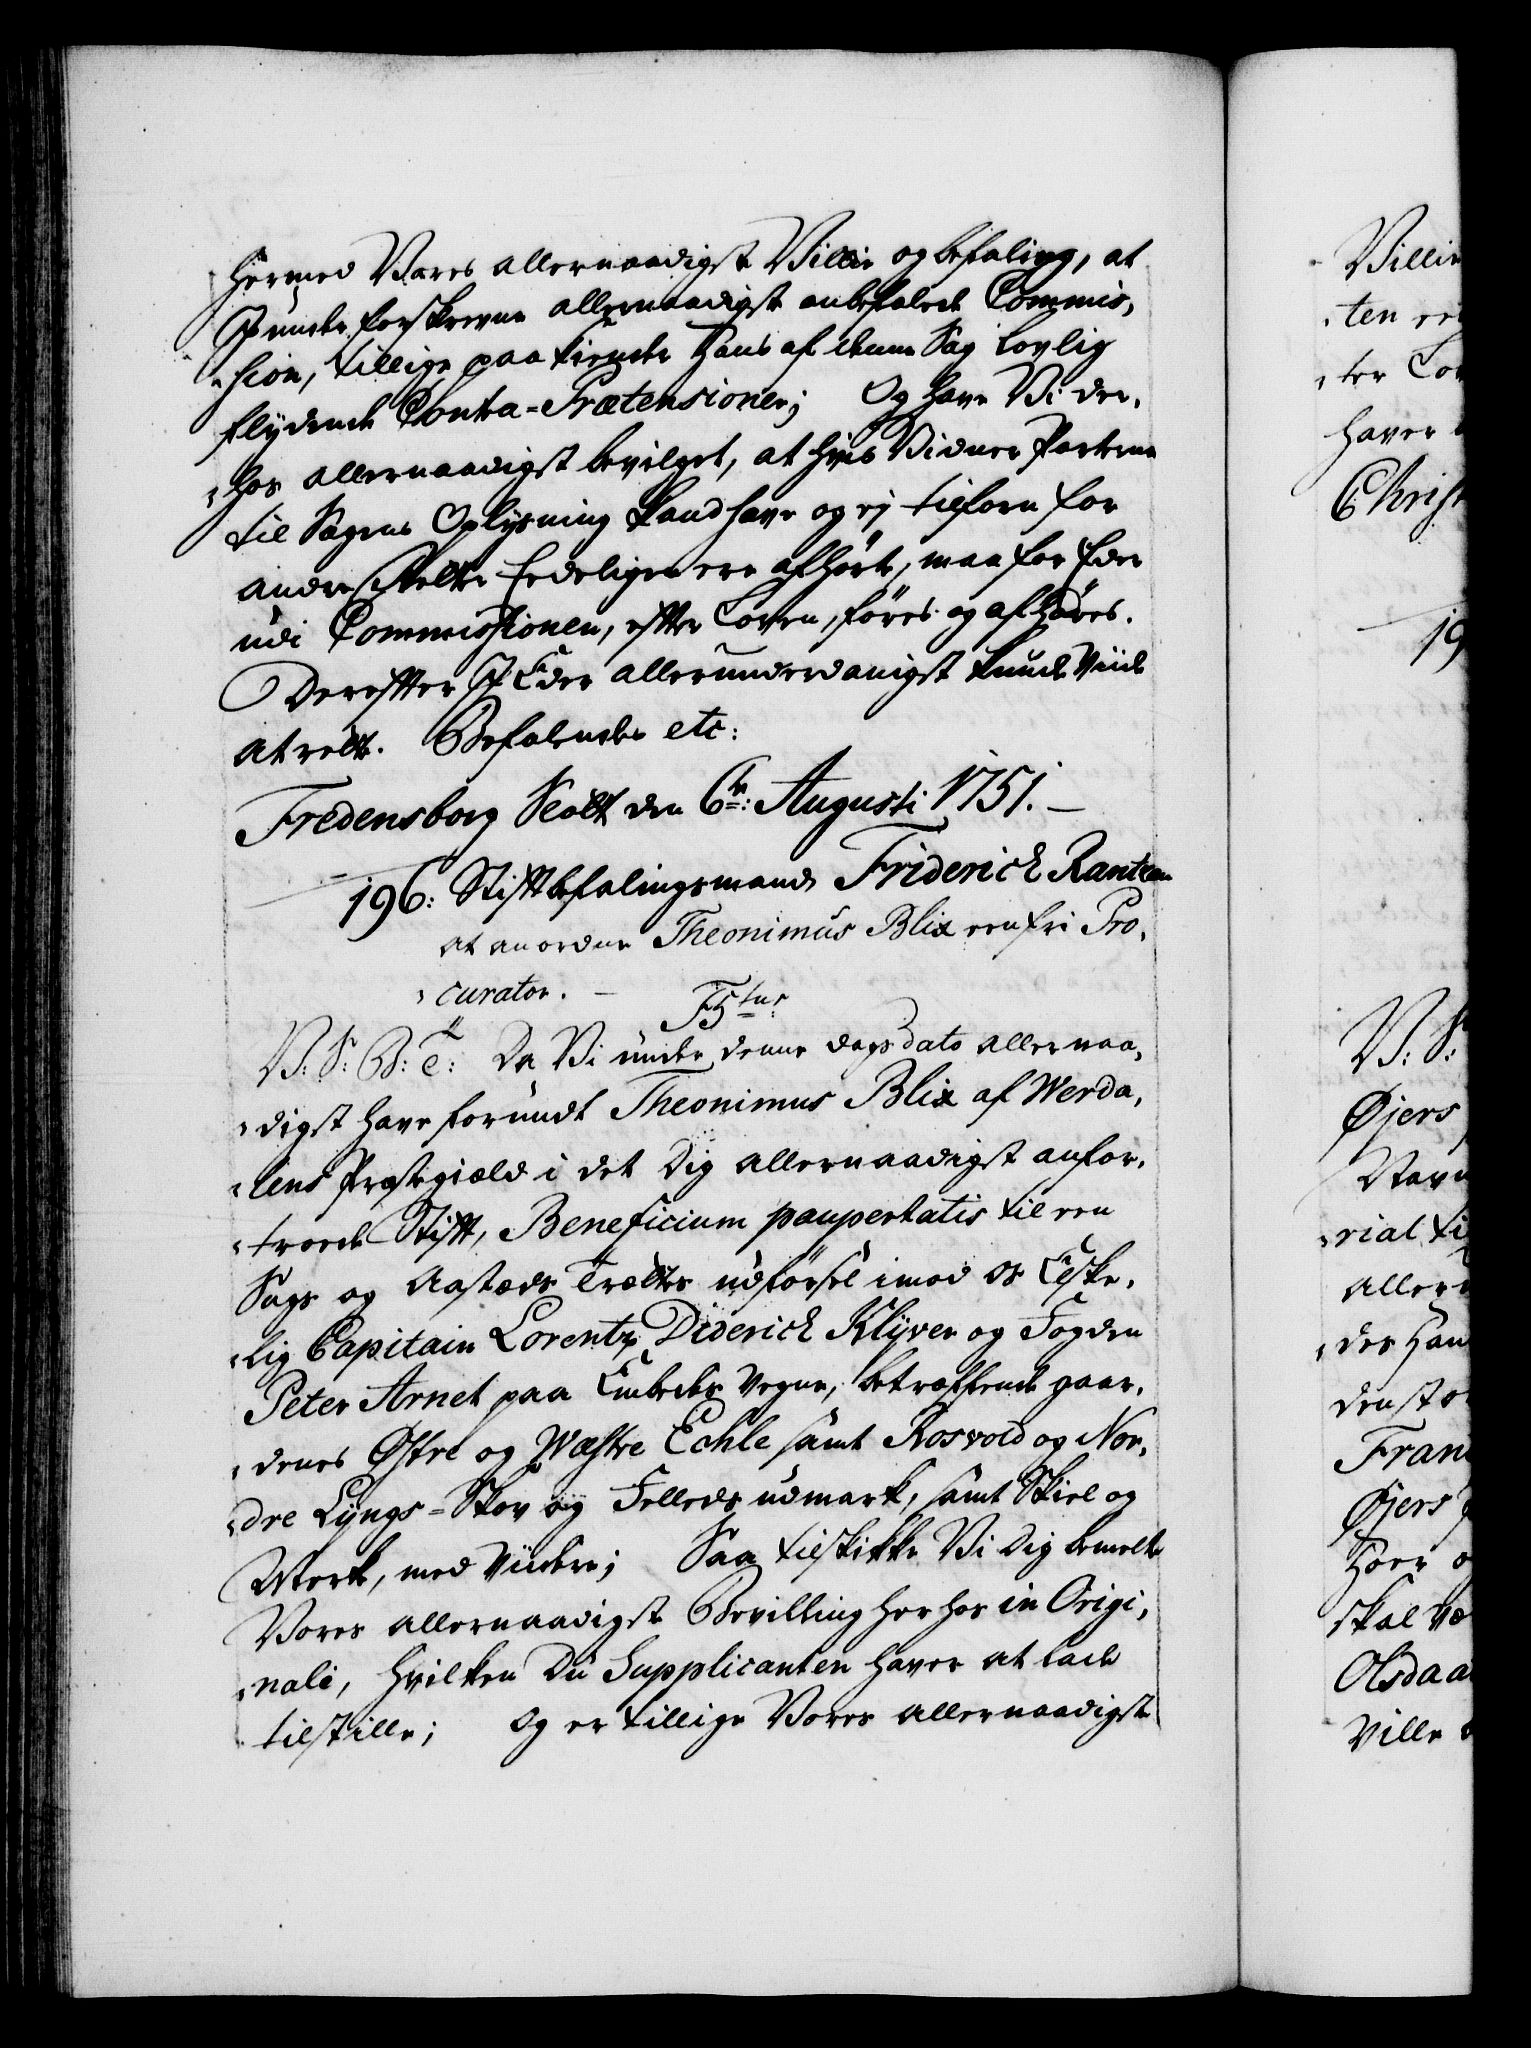 hermed Vores allernaadigst Villie og befaling, at
I under forskrevne allernaadigst anbefalede Commis,
sion, tillige paa kiender Hans af denne Sag lovlig
flydende Contra=Prætensioner; Og have Vi der,
hos allernaadigst bevilget, at hvis Vidner Parterne
til Sagens Oplysning kand have og ej tilforn for
andre Retter Eedeligen ere afhørte, maa for Eder
udi Commissionen, efter Loven, føres og afhøres.
Derefter I Eder allerunderdanigst kunde viide
at rette. Befalendes etc:
Fredensborg Slott den 6te: Augusti 1751. –
196: Stiftbefalingsmand Friderich Rantzau
at anordne Theonimus Blix een fri Pro,
curator. –
F5tus
V: S: G: T: Da Vi under denne dags dato allernaa,
digst have forundt Theonimus Blix af Werda,
lens Præstegield i det Dig allernaadigst anfor,
troede Stift, Beneficium paupertatis til een
Sags og Aastæds Trættes udførsel imod Os Elske,
lig Capitain Lorentz Diderich Klÿver og Fogden
Peter Arnet paa Embeds Vegne, betræffende gaar,
denes Østre og Wæstre Echle samt Rosvold og Nor,
dre Lyngs=Skov og Felleds udmark, samt Skiel og
Merke, med Viidere; Saa tilskikke Vi Dig bemelte
Vores allernaadigst Bevilling herhos in Origi,
nali, hvilken Du Supplicanten haver at lade
tilstille; Og er tillige Vores allernaadigst
Villie
ten
ter Lov
haver
Christ
19
V: S:
Øjers
Navn
rial ti
Aller
des Han
den sto
Fran
Øjers
hoer o
skal væ
Olsdaa
Ville